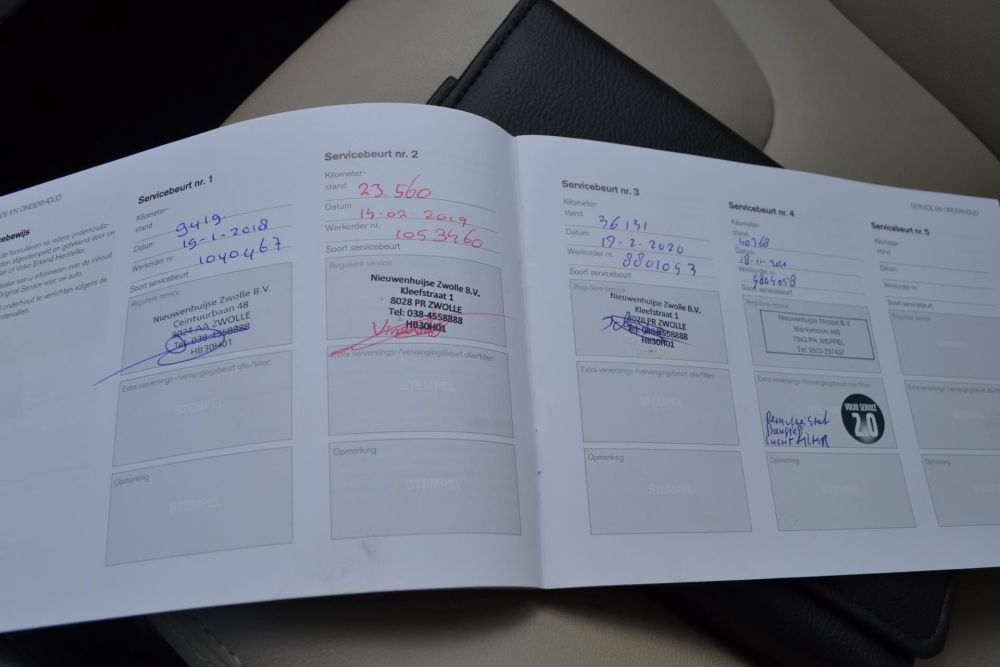 CE EN ONDERHOUD
cebewijs
de formulieren na iedere onderhouds-
en afgestempeld en getekend door uw
dealer of Volvo Erkend Hersteller.
dealer kan u informeren over de inhoud
Original Service voor uw auto.
onderhoud te verrichten volgens de
Servicebeurt nr. 1
Kilometer-
stand 9419
Datum 15-1-2018
Werkorder nr. 1040467
Soort servicebeurt
Reguliere service
Nieuwenhuijse Zwolle B.V.
Ceintuurbaan 48
8024 AA ZWOLLE
Tel: 038-4558888
HB30H01
Extra verversings-/vervangingsbeurt olie/filter:
STEMPEL
Opmerking
STEMPEL
Servicebeurt nr. 2
Kilometer-
stand 23.560
Datum 14-02-2019
Werkorder nr. 1053460
Soort servicebeurt
Reguliere service
Nieuwenhuijse Zwolle B.V.
Kleefstraat 1
8028 PR ZWOLLE
Tel: 038-4558888
HB30H01
Extra verversings-/vervangingsbeurt olie/filter:
STEMPEL
Opmerking
STEMPEL
Servicebeurt nr. 3
Kilometer-
stand 36131
Datum 19-2-2020
Werkorder nr. 8801093
Soort servicebeurt
Reguliere service
Nieuwenhuijse Zwolle B.V.
Kleefstraat 1
8028 PR ZWOLLE
Tel: 038-4558888
HB30H01
Extra verversings-/vervangingsbeurt olie/filter:
STEMPEL
Opmerking
STEMPEL
Servicebeurt nr. 4
Kilometer-
stand 40768
Datum
Werkorder nr. 9804058
Soort servicebeurt
Reguliere service
Nieuwenhuijse Meppel B.V.
Blankenstein 490
7943 PH MEPPEL
Tel: 0522-237437
Extra verversings-/vervangingsbeurt olie/filter:
LUCHTFILTER
VOLVO SERVICE
2.0
Opmerking
STEMPEL
SERVICE EN ONDERHOUD
Servicebeurt nr. 5
Kilometer-
stand
Datum
Werkorder nr.
Soort servicebeurt
Reguliere service
Extra verversings-/vervangings
Opmerking